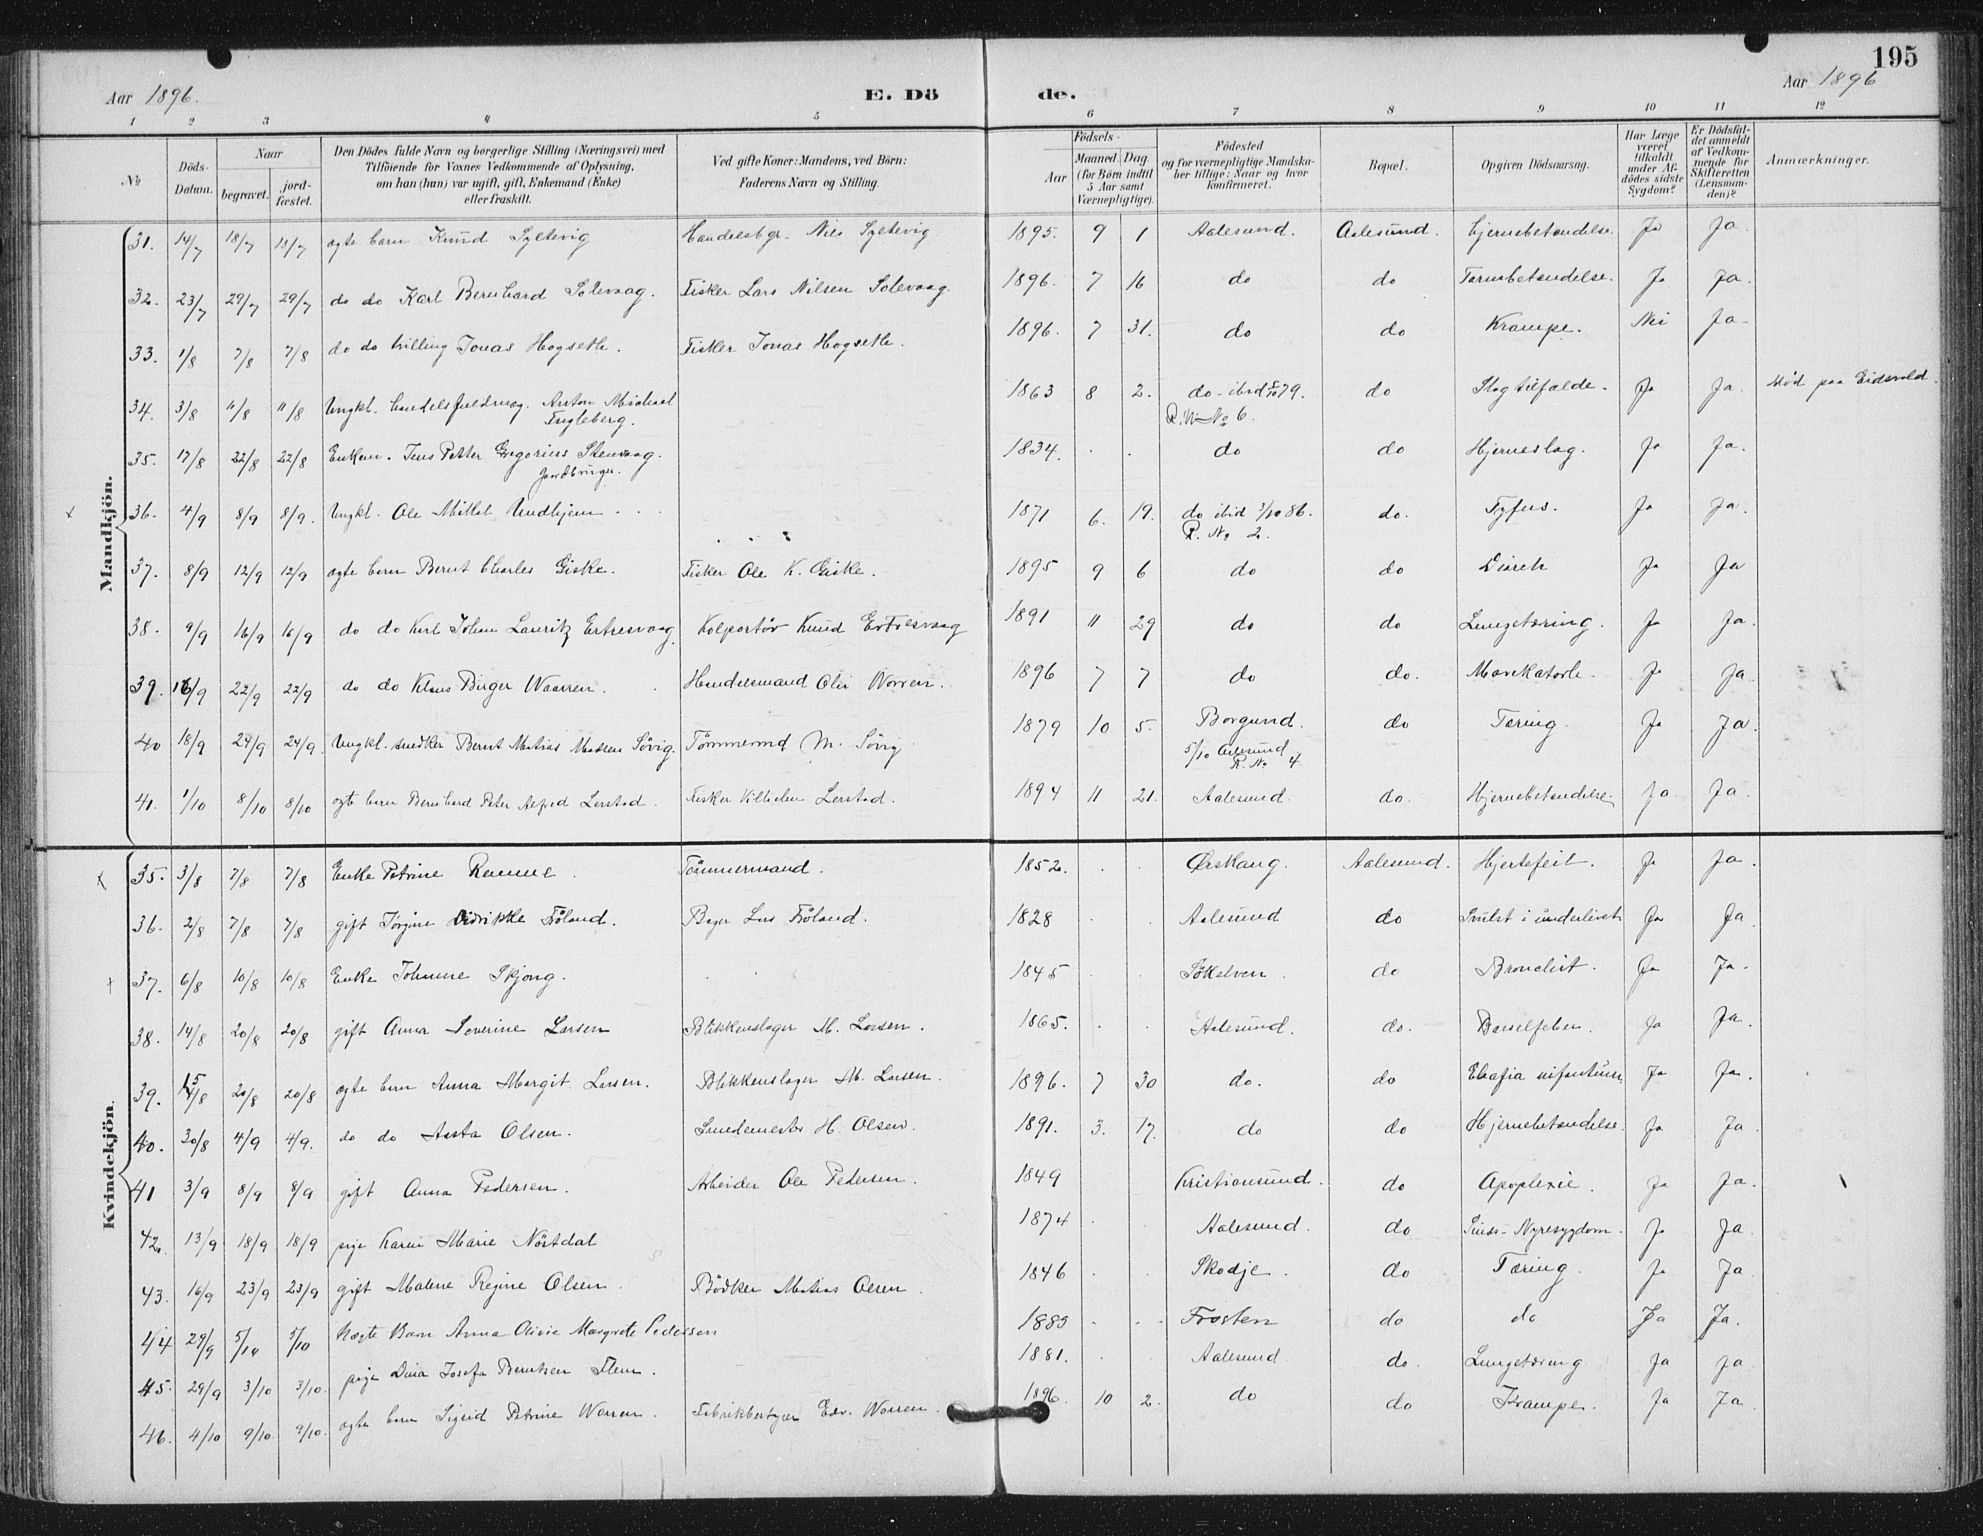 195
Aar 1896.
E. Dö de.
Aar 1896
1 2 3 4 5 6 7 8 9 10 11 12
No
Döds-Datum.
Naar
begravet.
jordfæstet.
Den Dödes fulde Navn og borgerlige Stilling (Næringsvei) med
Tilföiende for Voxnes Vedkommende af Oplysning,
om han (hun) var ugift, gift, Enkemand (Enke)
eller fraskilt.
Ved gifte Koner: Mandens, ved Börn:
Faderens Navn og Stilling.
Födsels-
Aar
Maaned Dag
(for Börn indtil
5 Aar samt
Værnepligtige).
Födested
og for værnepligtige Mandskaber
tillige: Naar og hvor
konfirmeret.
Bopæl.
Opgiven Dödsaarsag.
Har Læge
været
tilkaldt
under Afdödes
sidste
Sygdom?
Er Dödsfaldet
anmeldt
af Vedkommende
for
Skifteretten
(Lensmanden)?
Anmærkninger.
Mandkjön.
31. 14/7 18/7 18/7 ægte barn Knud Syltevig Handelsbgr. Nils Syltevig 1895. 9 1 Aalesund. Aalesund. Hjernebetændelse. Ja Ja.
32. 23/7 29/7 29/7 do do Karl Bernhard Solevaag. Fisker Lars Nilsen Solevaag. 1896. 7 16 do do Tarmbetændelse. Ja Ja.
33. 1/8 7/8 7/8 do do trilling Jonas Hogseth. Fisker Jonas Hogseth. 1896. 7 31. do do Krampe. Nei Ja
34. 3/8 11/8 11/8 Ungkl. handelsfuldmæg. Anton Michael 1863 8 2. do - ibid 79. do Slagtilfælde. Ja Ja. död paa Eidsvold.
Fugleberg. R. No 6.
35. 17/8 22/8 22/8 Enkem. Jens Petter Gregorius Stenvaag. 1834. . . do do Hjerneslag. Ja Ja.
Jordbruger.
x 36. 4/9 8/9 8/9. Ungkl. Ole Mikkel Undhjem 1871 6. 19. do ibid 3/10 86. do. Tyfus. Ja Ja.
R. No 2.
37. 8/9 12/9 12/9 ægte barn Bernt Charles Giske. Fisker Ole K. Giske. 1895 9 6 do do Diareh Ja Ja
38. 9/9 16/9 16/9 do do Karl Johan Lauritz Ertresvaag Kolportør Knud Ertresvaag 1891 11 29 do do Lungetæring. Ja Ja.
39. 16/9 22/9 22/9 do do Klaus Birger Waarren. Handelsmand Olei Worren. 1896 7 7 do do. Mavekatarh. Ja Ja
40 18/9 24/9 24/9. Ungkl. snedker Bernt Matias Madsen Sövig. Tömmermd M. Sövig 1879 10 5. Borgund. do Tæring. Ja Ja.
5/10 Aalesund
R. No 4
41. 1/10 8/10 8/10 ægte barn Bernhard Peter Alfred Lerstad. Fisker Vilhelm Lerstad. 1894 11 21. Aalesund. do. Hjernebetændelse. Ja. Ja.
Kvindekjön.
x 35. 3/8 7/8 7/8 Enke Petrine Remme. Tömmermand. 1852. . . Ørskaug. Aalesund. Hjertefeil. Ja Ja.
36. 2/8 7/8 7/8 gift Jörgine Didrikke Fröland. Bager Lars Fröland. 1828 . . Aalesund do Svulst i underlivet Ja Ja
+ 37. 6/8 10/8 10/8 Enke Johanne Skjong. 1845 . . Sökelven do Bronchit. Ja Ja.
38. 14/8 20/8 20/8 gift Anna Soverine Larsen Blikkenslager M. Larsen. 1865. . . Aalesund. do. Barselfeber. Ja Ja.
39. 15/8 20/8 20/8 ægte barn Anna Margit Larsen. Blikkenslager M. Larsen. 1896. 7 30 do. do infantum Ja Ja.
40. 30/8 4/9 4/9. do do Aasta Olsen. Smedemester H. Olsen. 1891. 3. 17. do do Hjernebetændelse. Ja Ja
41 3/9 8/9 8/9 gift Anna Pedersen. Arbeider Ole Pedersen. 1849 Kristiansund. do Apoplexie. Ja Ja.
42. 13/9 18/9 18/9 pige Karen Marie Nöstdal 1874 . . Aalesund. do Sinds-Nyresygdom. Ja Ja
43. 16/9 23/9 23/9 gift Malene Regine Olsen. Bödker Matias Olsen. 1846 . . Skodje. do Tæring. Ja Ja
44 29/9 5/10 5/10 Uægte Barn Anna Olivie Margrete Pedersen 1885 . . Frosten do do Ja Ja.
45. 29/9 3/10 3/10. pige Dina Josefa Berntsen Flem 1881. . . Aalesund do. Lungetæring Ja Ja
46. 4/10 9/10. 9/10. ægte barn Sigrid Petrine Worren. Fabrikbestyrer Edv. Worren. 1896. 10 2. do do Krampe. Ja Ja.